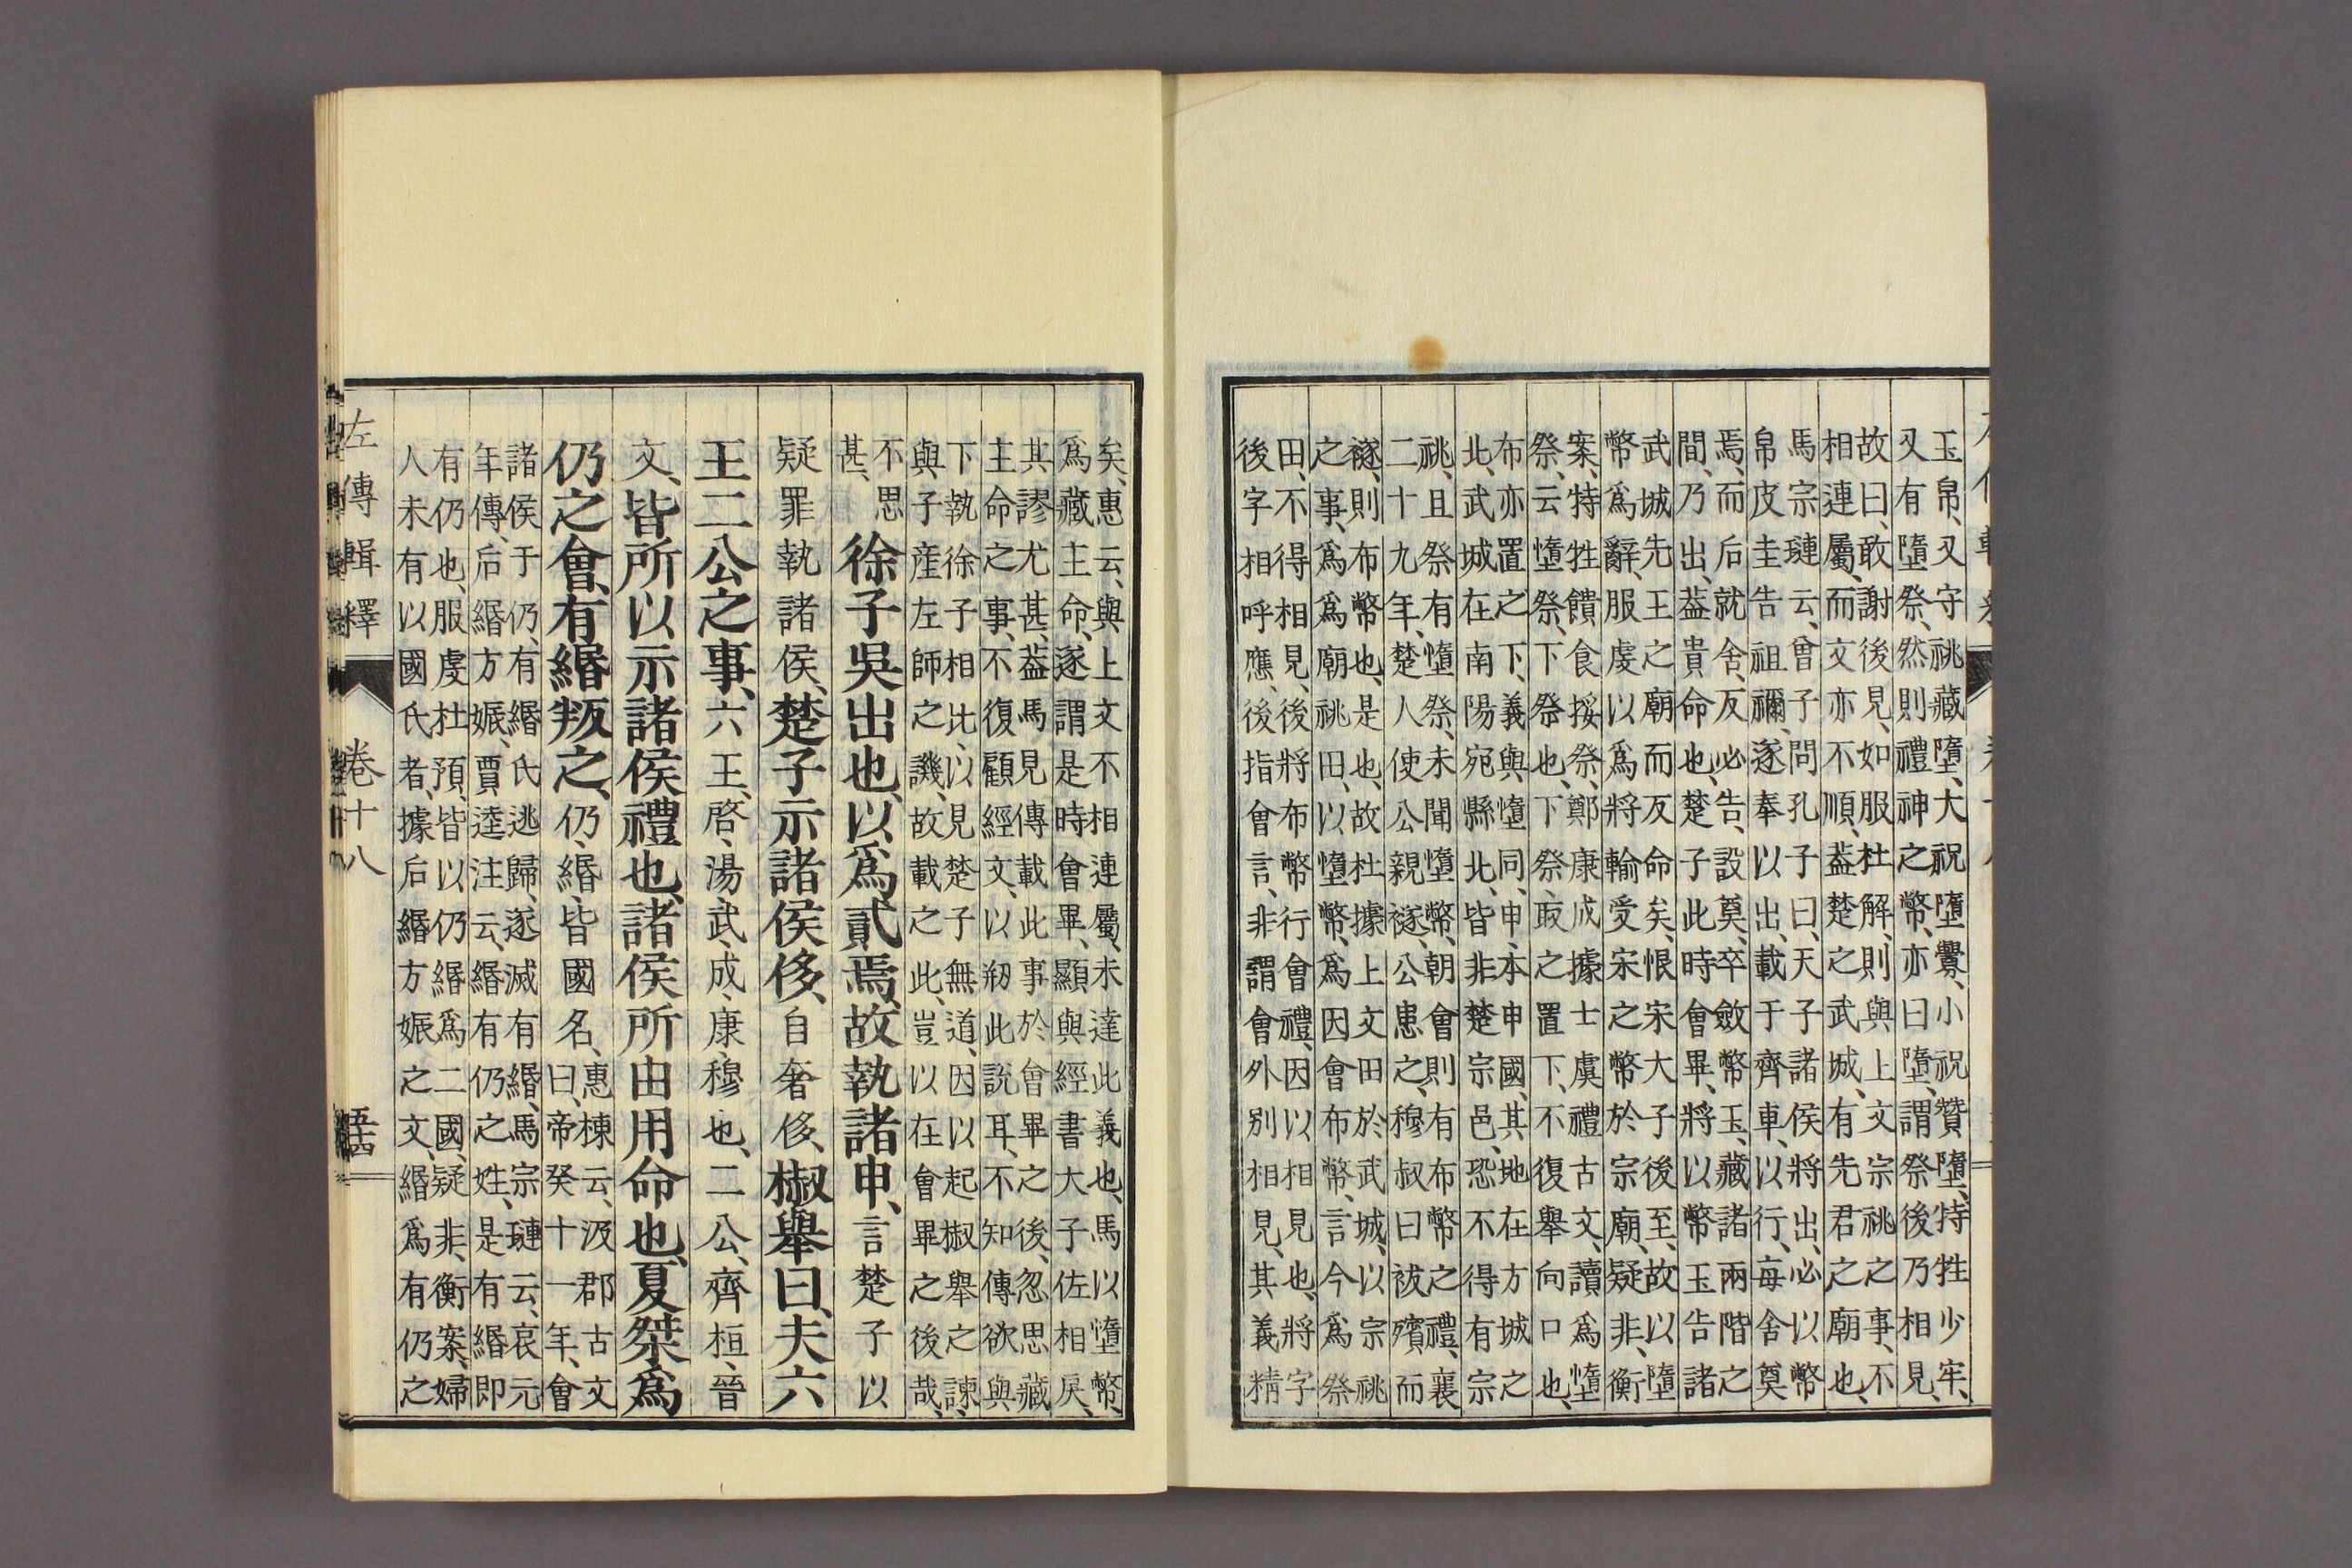 玉帛、又守祧藏墮、大祝墮釁、小祝贊墮、特牲少牢、
又有墮祭、然則禮神之幣、亦曰墮、謂祭後乃相見、
故曰、敢謝後見、如服杜解、則與上文宗祧之事、不
相連屬、而文亦不順、葢楚之武城、有先君之廟也、
馬宗璉云、曾子問孔子曰、天子諸侯將出、必以幣
帛皮圭告祖禰、遂奉以出、載于齊車、以行、每舍奠
焉、而后就舍、反必告、設奠、卒斂幣玉、藏諸兩階之
間、乃出、葢貴命也、楚子此時會畢、將以幣玉告諸
武城先王之廟而反命矣、恨宋大子後至、故以墮
幣爲辭、服虔以爲將輸受宋之幣於宗廟、疑非、衡
案、特牲饋食挼祭、鄭康成據士虞禮古文、讀爲墮
祭、云墮祭、下祭也、下祭、取之置下、不復舉向口也、
布亦置之下、義與墮同、申、本申國、其地在方城之
北、武城在南陽宛縣北、皆非楚宗邑、恐不得有宗
祧、且祭有墮祭、未聞墮幣、朝會則有布幣之禮、襄
二十九年、楚人使公親襚、公患之、穆叔曰祓殯而
襚、則布幣也、是也、故杜據上文田於武城、以宗祧
之事、爲爲廟祧田、以墮幣、爲因會布幣、言今爲祭
田、不得相見、後將布幣行會禮、因以相見也、將字
後字相呼應、後指會言、非謂會外別相見、其義精
矣、惠云、與上文不相連屬、未達此義也、馬以墮幣、
爲藏主命、遂謂是時會畢、顯與經書大子佐相戾、
其謬尤甚、葢馬見傳載此事於會畢之後、忽思藏
主命之事、不復顧經文、以剏此說耳、不知傳欲與
下執徐子相比、以見楚子無道、因以起椒舉之諫、
與子產左師之譏、故載之此、豈以在會畢之後哉、
不思
甚、
徐子吳出也、以爲貳焉、故執諸申、言楚子以
疑罪執諸侯、楚子示諸侯侈、自奢侈、椒舉曰、夫六
王二公之事、六王、啓、湯、武、成、康、穆也、二公、齊桓、晉
文、皆所以示諸侯禮也、諸侯所由用命也、夏桀爲
仍之會、有緡叛之、仍、緡、皆國名、
惠棟云、汲郡古文
曰、帝癸十一年、會
諸侯于仍、有緡氏逃歸、遂滅有緡、馬宗璉云、哀元
年傳、后緡方娠、賈逵注云、緡有仍之姓、是有緡即
有仍也、服虔杜預、皆以仍緡爲二國、疑非、衡案、婦
人未有以國氏者、據后緡方娠之文、緡爲有仍之
左傳輯釋 卷十八